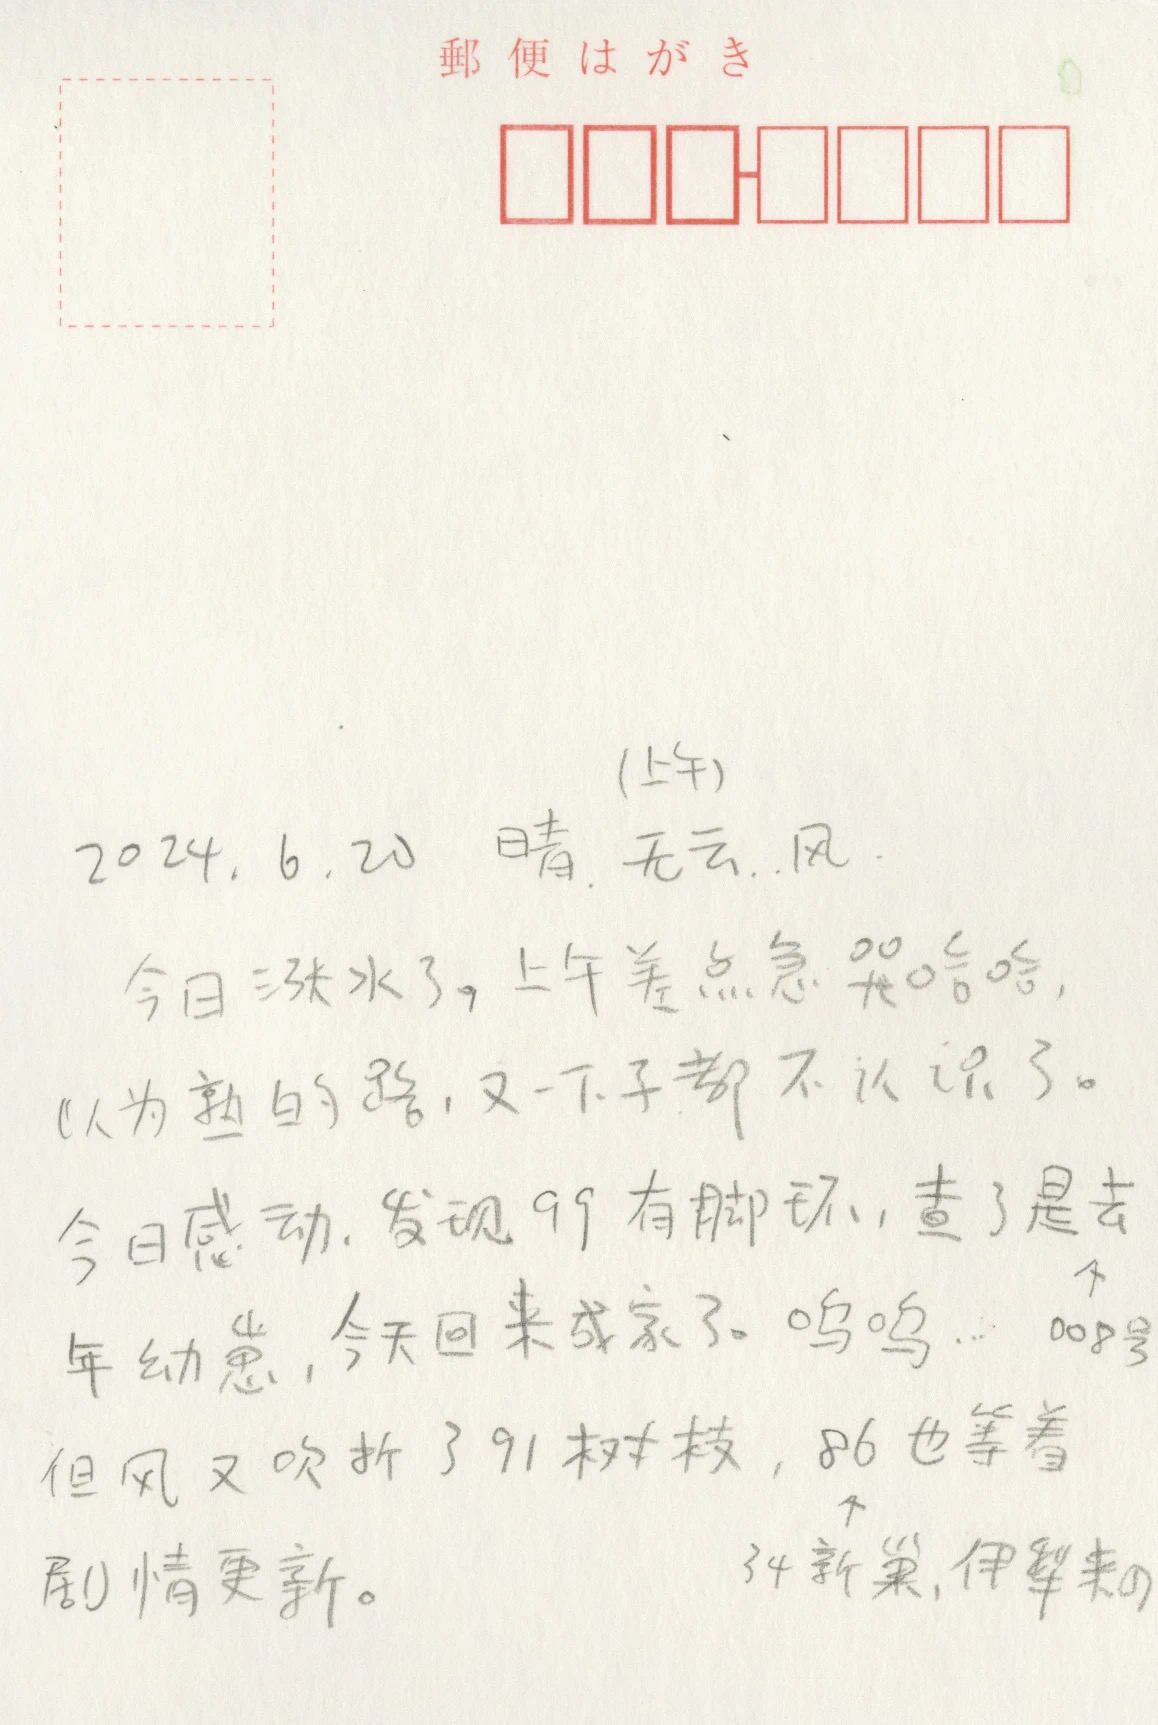 郵便はがき
(上午)
2024.6.20 晴.无云..风.
今日涨水了。上午差点急哭哈哈,
以为熟的路,又一下子都不认识了。
今日感动.发现99有脚环,查了是去
年幼崽,今天回来成家了。呜呜…
↑
008号
但风又吹折了91树枝,86也等着
↑
剧情更新。 34新巢,伊犁来の